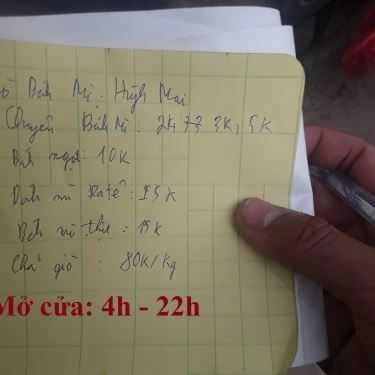 Bánh Mì: Huỳnh Mai
Chuyên Bánh Mì: 2k, 3k, 5k
Bánh ngọt: 10k
Bánh mì Patê: 15k
Bánh mì thịt: 15k
Chả giò: 80k/kg
Mở cửa: 4h - 22h